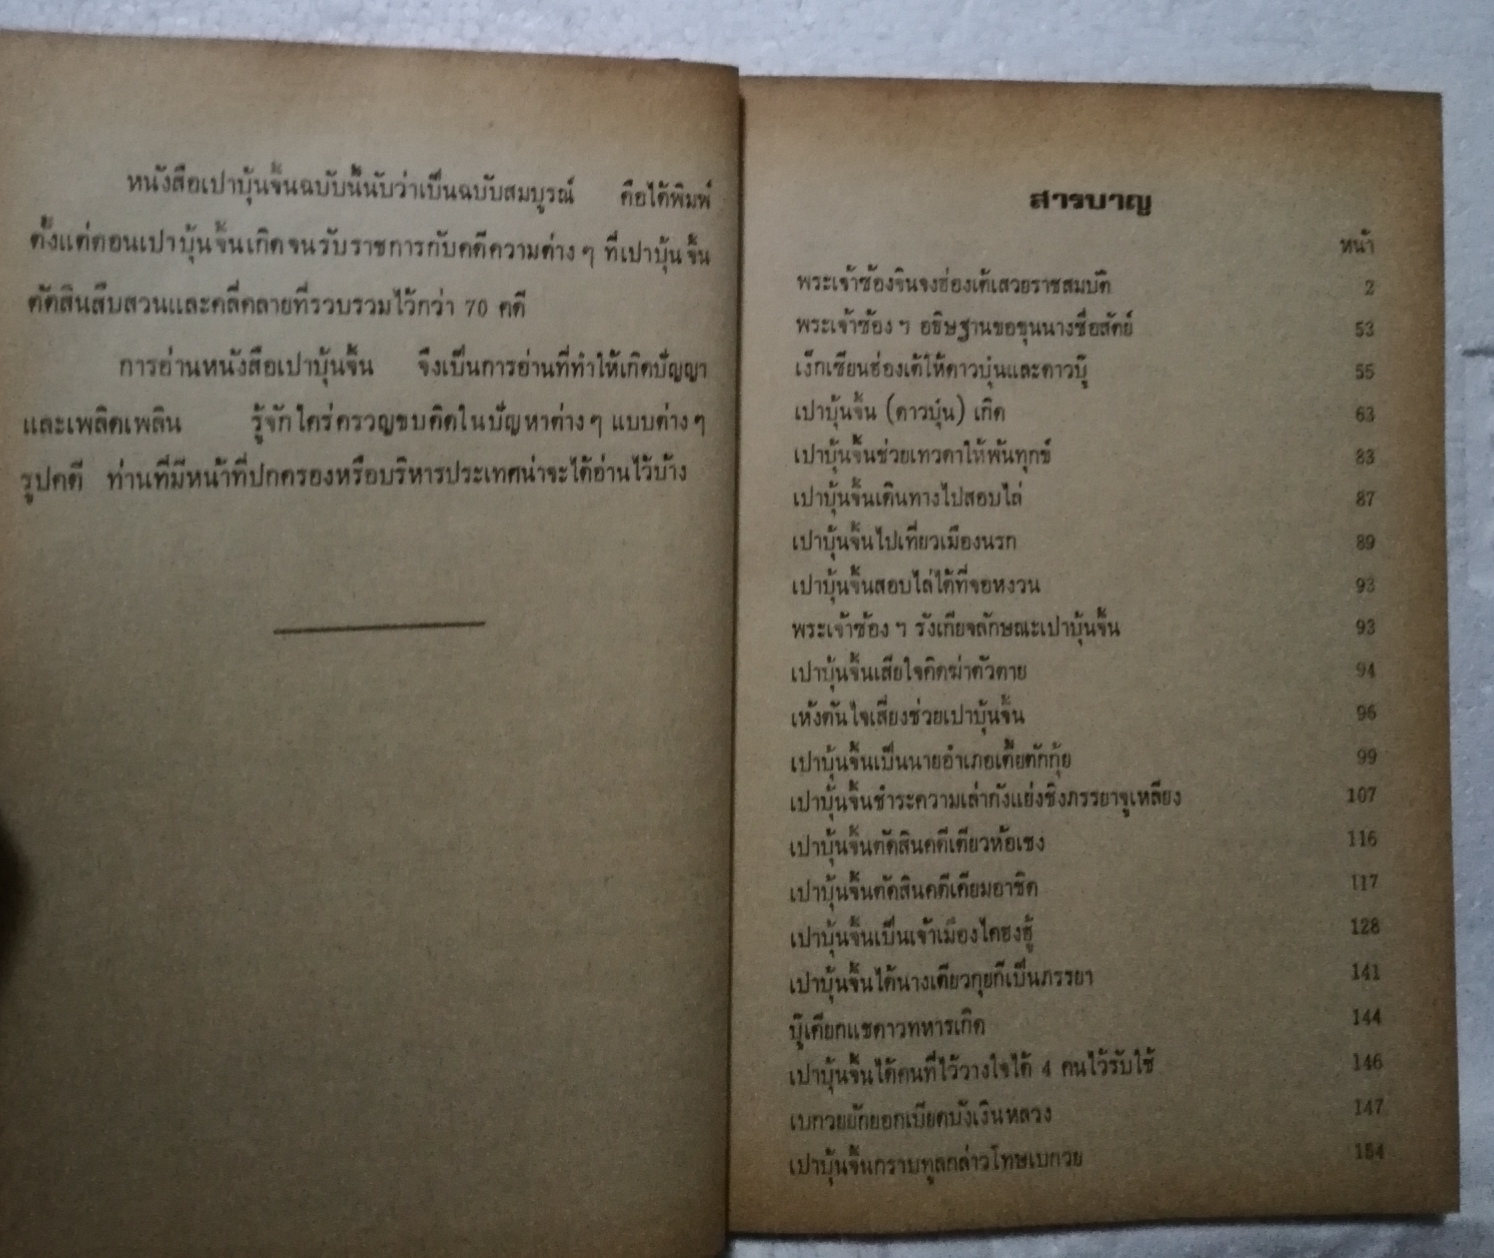 หนังสือเปาบุ้นจิ้นฉบับนี้นับว่าเป็นฉบับสมบูรณ์ คือได้พิมพ์
ตั้งแต่ตอนเปาบุ้นจิ้นเกิดจนรับราชการกับคดีความต่าง ๆ ที่เปาบุ้นจิ้น
ตัดสินสืบสวนและคลี่คลายที่รวบรวมไว้กว่า 70 คดี
การอ่านหนังสือเปาบุ้นจิ้น จึงเป็นการอ่านที่ทำให้เกิดปัญญา
และเพลิดเพลิน รู้จักใคร่ครวญขบคิดในปัญหาต่าง ๆ แบบต่าง ๆ
รูปคดี ท่านที่มีหน้าที่ปกครองหรือบริหารประเทศน่าจะได้อ่านไว้บ้าง
สารบาญ
หน้า
พระเจ้าซ้องจินจงฮ่องเต้เสวยราชสมบัติ 2
พระเจ้าซ้อง ฯ อธิษฐานขอขุนนางซื่อสัตย์ 53
เง็กเซียนฮ่องเต้ให้ดาวบุ่นและดาวบู๊ 55
เปาบุ้นจิ้น (ดาวบุ่น) เกิด 63
เปาบุ้นจิ้นช่วยเทวดาให้พ้นทุกข์ 83
เปาบุ้นจิ้นเดินทางไปสอบไล่ 87
เปาบุ้นจิ้นไปเที่ยวเมืองนรก 89
เปาบุ้นจิ้นสอบไล่ได้ที่จอหงวน 93
พระเจ้าซ้อง ฯ รังเกียจลักษณะเปาบุ้นจิ้น 93
เปาบุ้นจิ้นเสียใจคิดฆ่าตัวตาย 94
เห้งตันไจเสี่ยงช่วยเปาบุ้นจิ้น 96
เปาบุ้นจิ้นเป็นนายอำเภอเตี้ยตักกุ้ย 99
เปาบุ้นจิ้นชำระความเล่ากังแย่งชิงภรรยาจูเหลียง 107
เปาบุ้นจิ้นตัดสินคดีเตียวห้อเซง 116
เปาบุ้นจิ้นตัดสินคดีเตียมอาชิด 117
เปาบุ้นจิ้นเป็นเจ้าเมืองไคฮงฮู้ 128
เปาบุ้นจิ้นได้นางเตียวกุยกีเป็นภรรยา 141
บู๊เตียกแชดาวทหารเกิด 144
เปาบุ้นจิ้นได้คนที่ไว้วางใจได้ 4 คนไว้รับใช้ 146
เบกวยยักยอกเบียดบังเงินหลวง 147
เปาบุ้นจิ้นกราบทูลกล่าวโทษเบกวย 154